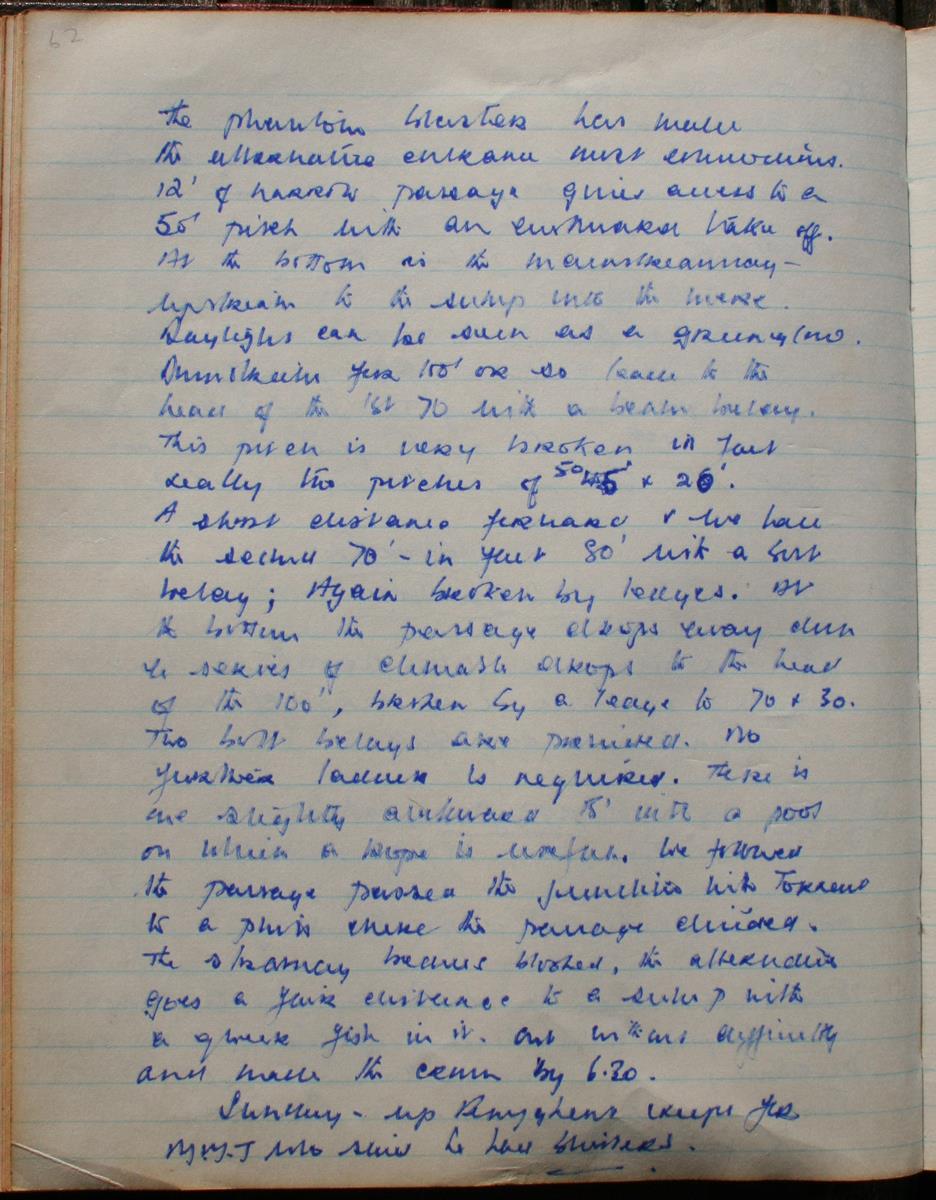 62
the phantom blaster has made
the alternative entrance most commodious.
12' of narrow passage gives access to a
50' pitch with an awkward take off.
At the bottom is the mainstreamway -
upstream to the sump into the mere.
Daylight can be seen as a green glow.
Downstream for 100' or so leads to the
head of the 1st 70 with a beam belay.
This pitch is very broken in fact
really two pitches of 50 45' & 20'.
A short distance forward & we have
the second 70' - in fact 80' with a bolt
belay; Again broken by ledges. At
the bottom the passage drops away down
a series of climbable drops to the head
of the 100', broken by a ledge to 70 & 30.
Two bolt belays are provided. No
further ladder is required. There is
one slightly awkward 15' into a pool
on which a rope is useful. We followed
the passage passed the junction with Torrent
to a point where the passage divided.
The streamway becomes blocked, the alternative
goes a fair distance to a sump with
a queer fish in it. Out without difficulty
and made the crown by 6.30.
Sunday - up Penyghent except for
who said he had blisters.